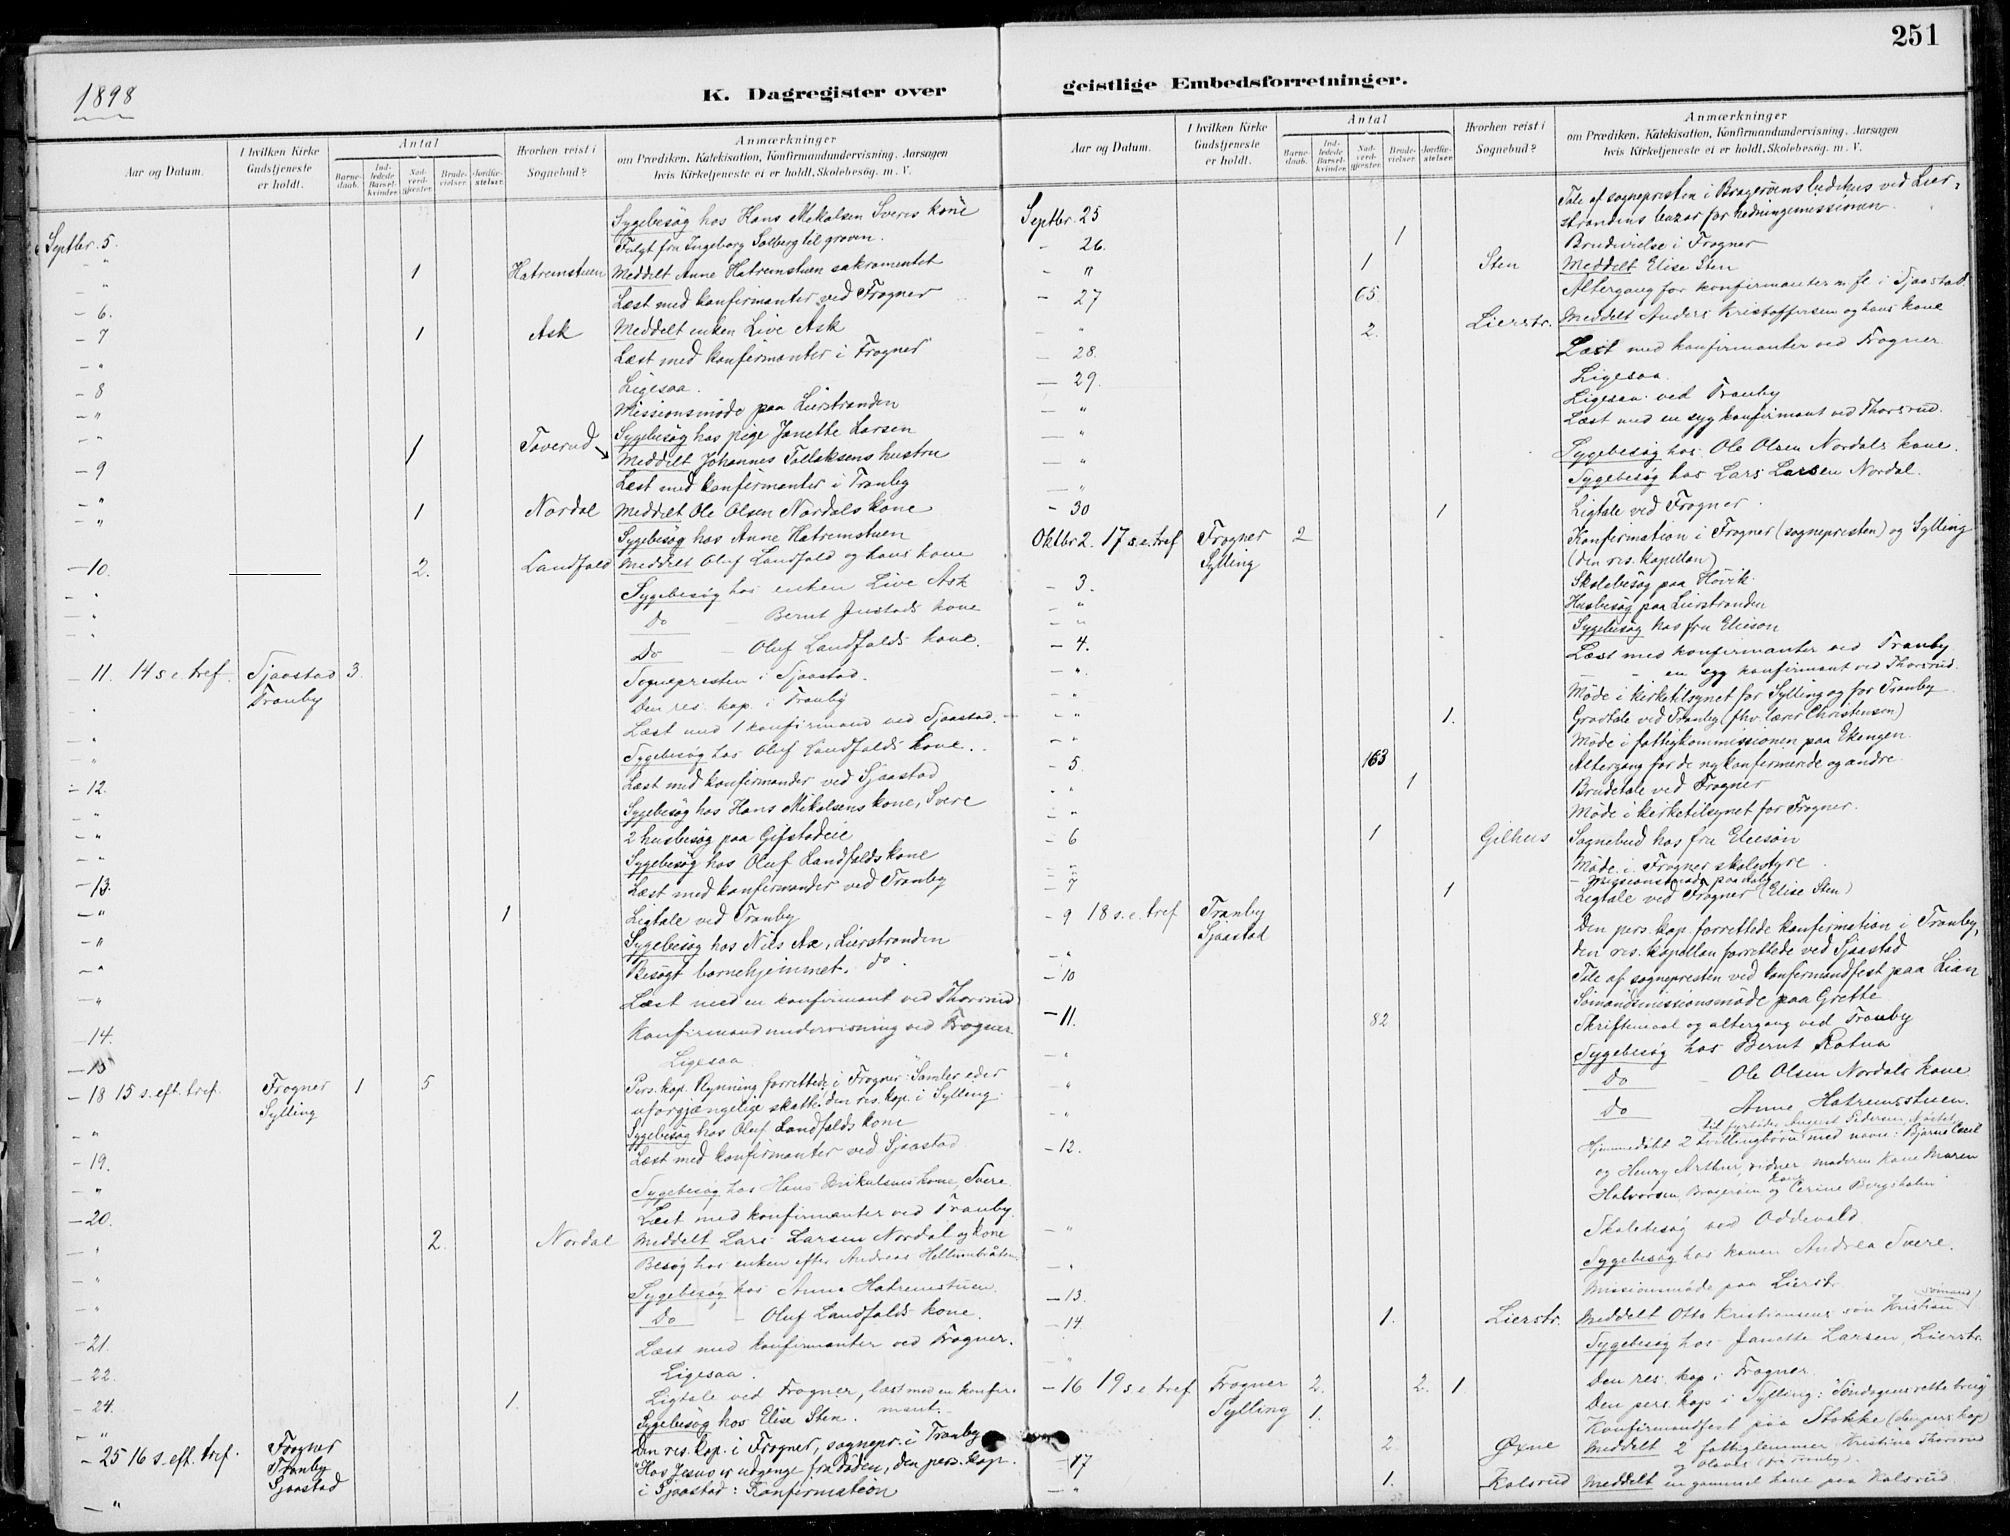 251
1898
K. Dagregister over geistlige Embedsforretninger.
Aar og Datum. I hvilken Kirke Gudstjeneste er holdt. Antal Barne-daab. Ind-ledede Barsel-kvinder. Nad-verd-gjester. Brude-vielser. Jordfæ-stelser. Hvorhen reist i Sognebud? Anmærkninger om Prædiken, Katekisation, Konfirmandundervisning, Aarsagen hvis Kirketjeneste ei er holdt, Skolebesøg. m. V.
Septbr. 5. Sygebesøg hos Hans Mikalsen Sveres kone
" Fulgt fra Ingeborg Solberg til graven.
" 1 Hatremstuen Meddelt Anne Hatremstuen sakramentet
- 6. Læst med konfirmanter ved Frogner
- 7 1 Ask Meddelt enken Live Ask
" Læst med konfirmanter i Frogner
- 8 Ligesaa.
" Missionsmøde paa Lierstranden
" Sygebesøg hos pige Janette Larsen
- 9 1 Toverud Meddelt Johannes Tollaksens hustru
" Læst med konfirmanter i Tranby
" 1 Nordal Meddelt Ole Olsen Nordals kone
Sygebesøg hos Anne Hatremstuen
- 10. 2. Landfald Meddelt Oluf Landfald og hans kone
" Sygebesøg hos enken Live Ask
" Do - Bernt Justads kone
" Do - Oluf Landfalds kone.
- 11. 14 s. e. tref. Sjaastad 3. Sognepresten i Sjaastad.
" Tranby Den res. kap. i Tranby
" Læst med 1 konfirmand ved Sjaastad.
" Sygebesøg hos Oluf Landfalds kone.
- 12. Læst med konfirmander ved Sjaastad
" Sygebesøg hos Hans Mikalsens kone, Svere
" 2 husbesøg paa Gifstadeie
" Sygebesøg hos Oluf Landfalds kone
- 13. Læst med konfirmander ved Tranby
" 1 Ligtale ved Tranby
" Sygebesøg hos Nils Aa, Lierstranden
" Besøgt barnehjemmet. do.
" Læst med en konfirmant ved Thorsrud
- 14. Konfirmandundervisning ved Frogner
- 15 Ligesaa
- 18 15 s. eft. tref. Frogner 1 5 Pers. kap. Rynning forrettede i Frogner: Samler eder
Sylling uforgjængelige skatte. den res. kap. i Sylling.
" Sygebesøg hos Oluf Landfalds kone
- 19. Læst med konfirmanter ved Sjaastad
" Sygebesøg hos Hans Mikalsens kone, Svere.
- 20. Læst med konfirmanter ved Tranby.
" 2. Nordal Meddelt Lars Larsen Nordal og kone
Besøg hos enken efter Andreas
" Sygebesøg hos Anne Hatremstuen
" Do - Oluf Landfalds kone.
- 21. Læst med konfirmanter ved Frogner.
- 22. Ligesaa.
- 24. 1. Ligtale ved Frogner, læst med en konfirmant.
" Sygebesøg hos Elise Sten.
- 25 16 s. eft. tref. Frogner Den res. kap. i Frogner, sognepr. i Tranby
Tranby "Hos Jesus er udgange fra døden, den pers. kap.
" Sjaastad i Sjaastad: Konfirmation
Aar og Datum. I hvilken Kirke Gudstjeneste er holdt. Antal Barne-daab. Ind-ledede Barsel-kvinder. Nad-verd-gjester. Brude-vielser. Jordfæ-stelser. Hvorhen reist i Sognebud? Anmærkninger om Prædiken, Katekisation, Konfirmandundervisning, Aarsagen hvis Kirketjeneste ei er holdt, Skolebesøg. m. V.
Septbr. 25 Tale af sognepresten i Bragerøens bedehus ved Lier-
strandens bazar for hedningemissionen.
- 26. 1 Brudevielse i Frogner
- " 1 Sten Meddelt Elise Sten
- 27 65 Altergang for konfirmanter m. fl. i Sjaastad.
" 2. Lierstr. Meddelt Anders Kristoffersen og hans kone
- 28. Læst med konfirmanter ved Frogner
- 29. Ligesaa.
" Ligesaa ved Tranby
" Læst med en syg konfirmant ved Thorsrud.
" Sygebesøg hos Ole Olsen Nordals kone.
" Sygebesøg hos Lars Larsen Nordal.
- 30 1 Ligtale ved Frogner.
Oktbr 2. 17 s. e. tref Frogner 2 Konfirmation i Frogner (sognepresten) og Sylling
Sylling (den res. kapellan)
- 3. Skolebesøg paa Høvik.
" Husbesøg paa Lierstranden
" Sygebesøg hos fru Elieson
- 4. Læst med konfirmanter ved Tranby
" - - en syg konfirmant ved Thorsrud.
" Møde i kirketilsynet for Sylling og for Tranby
" 1. Gravtale ved Tranby (fhv. lærer Christensen)
" Møde i fattigkommissionen paa Ekengen.
- 5. 163 Altergang for de nykonfirmerede og andre.
" 1 Brudetale ved Frogner
" Møde i kirketilsynet for Frogner.
- 6 1 Gilhus Sognebud hos fru Elieson
" Møde i Frogner skolestyre.
" - Missionsmøde paa
- 7 1 Ligtale ved Frogner (Elise Sten)
- 9 18 s. e. tref Tranby Den pers. kap. forrettede konfirmation i Tranby,
" Sjaastad den res. kapellan forrettede ved Sjaastad
- 10 Tale af sognepresten ved konfirmandfest paa Lian
Sømandsmissionsmøde paa Grette
- 11. 82 Skriftemaal og altergang ved Tranby
" Sygebesøg hos Bernt Rotua
" Do - Ole Olsen Nordals kone
" Do Anne Hatremstuen.
til fyrbøder August Pedersen Nøstet
- 12. Hjemmedøbt 2 tvillingbørn med navn: Bjarne Emil
og Henry Arthur, vidner moderen kone Maren
Halvorsen Bragerøen og kone Cerine Bergsholm
" Skolebesøg ved Oddevald
" Sygebesøg hos konen Andrea Svere.
- 13. Missionsmøde paa Lierst.
- 14. 1. Lierstr. Meddelt Otto Kristiansens søn Kristian (sømand)
" Sygebesøg hos Janette Larsen, Lierstr.
- 16 19 s. e. tref Frogner 2. 2. 1 Den res. kap i Frogner.
Sylling 1. Den pers. kap i Sylling: "Søndagens rette brug"
Konfirmandfest paa Stokke (den pers. kap)
- 17 2. Øxne Meddelt 2 fattiglemmer, Kristine Thorsrud
og Olaves (fra Tranby).
" 1. Kalsrud Meddelt en gammel kone paa Kalsrud